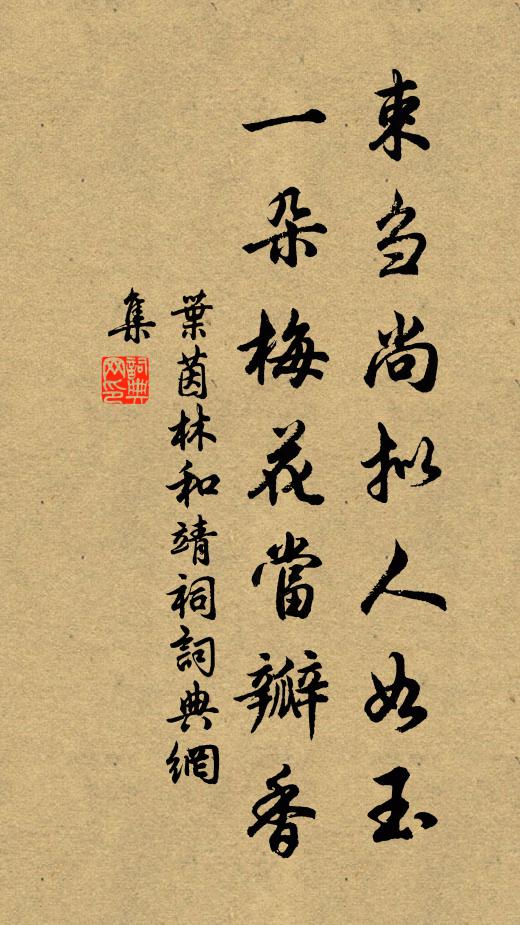 束刍尚拟人如玉
一朵梅花當瓣香
葉茵林和靖祠詞典網
集
詞典
网印